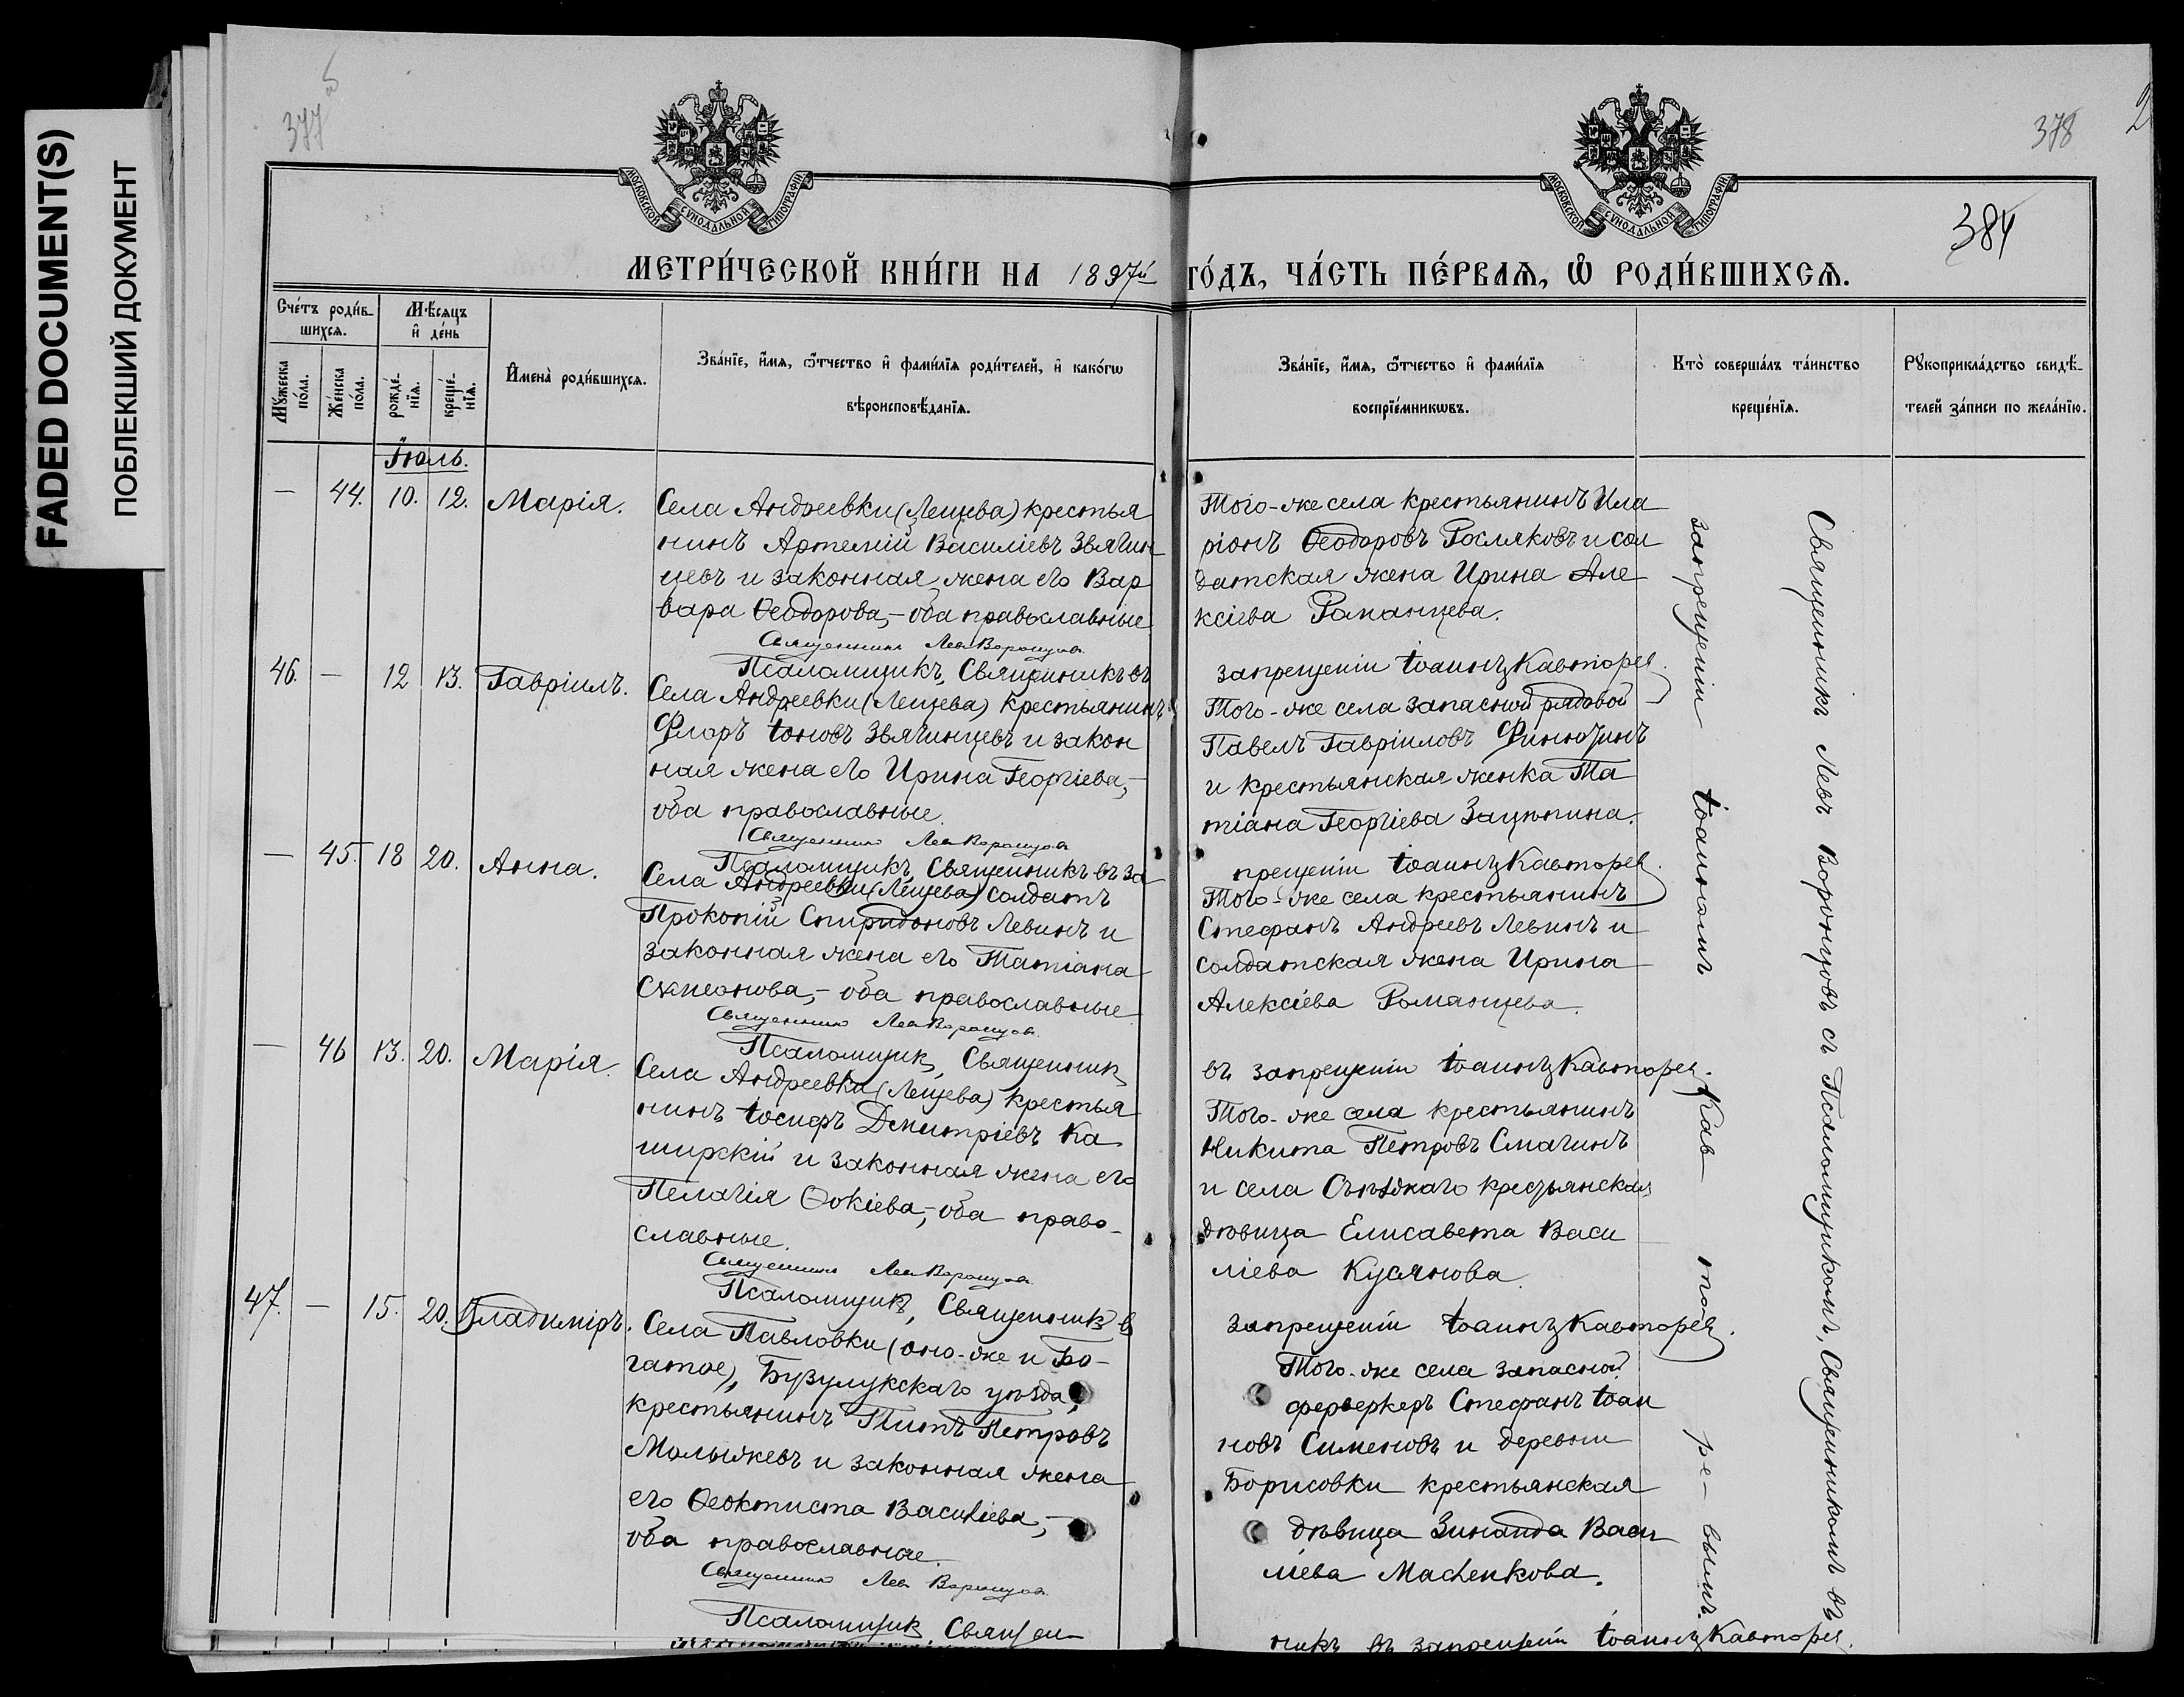 FADED DOCUMENT(S)
ПОБЛЕКШИЙ ДОКУМЕНТ
377
378
2
384
МОСКОВСКОЙ СѴНОДАЛЬНОЙ ТИПОГРАФІИ
МОСКОВСКОЙ СѴНОДАЛЬНОЙ ТИПОГРАФІИ
МЕТРИ́ЧЕСКОЙ КНИ́ГИ НА 1897й ГО́ДЪ, ЧА́СТЬ ПЕ́РВАѦ, Ѿ РОДИ́ВШИХСѦ.
Сче́тъ роди́в-
шихсѧ.
Мѣ́сѧцъ
и҆ де́нь
Мꙋ́жеска по́ла.
Же́нска по́ла.
рожде́-нїѧ.
креще́-нїѧ.
И҆мена̀ роди́вшихсѧ.
Зва́нїе, и҆́мѧ, ѻ҆́тчество и҆ фами́лїѧ роди́телей, и҆ како́гѡ
вѣроисповѣ́данїѧ.
Зва́нїе, и҆́мѧ, ѻ҆́тчество и҆ фами́лїѧ
воспрїе́мникѡвъ.
Кто̀ соверша́лъ та́инство
креще́нїѧ.
Рꙋкоприкла́дство свидѣ́-
телей за́писи по жела́нїю.
Іюль.
— 44. 10. 12. Марія.
Села Андреевки (Лещева) крестья
нинъ Артемій Василіевъ Звягин
цевъ и законная жена его Вар
вара Ѳеодорова,- оба православные
Священникъ Левъ Воронцовъ
Псаломщикъ, Священникъ въ
Того-же села крестьянинъ Ила
ріонъ Ѳеодоровъ Росляковъ и сол
датская жена Ирина Але
ксіева Романцева.
запрещеніи Іоаннъ Кавторев.
46. — 12 13. Гавріилъ.
Села Андреевки (Лещева) крестьянинъ
Флоръ Іоновъ Звягинцевъ и закон
ная жена его Ирина Георгіева,-
оба православные.
Священникъ Левъ Воронцовъ
Псаломщикъ, Священникъ въ за
Того-же села запасной рядовой
Павелъ Гавріиловъ
и крестьянская женка Та
тіана Георгіева Зацепина.
прещеніи Іоаннъ Кавторев.
— 45. 18 20. Анна.
Села Андреевки (Лещева) солдатъ
Прокопій Спиридоновъ Левинъ и
законная жена его Татіана
оба православные
Священникъ Левъ Воронцовъ.
Псаломщик, Священник
Того-же села крестьянинъ
Стефанъ Андреевъ Левинъ и
солдатская жена Ирина
Алексіева Романцева.
въ запрещеніи Іоаннъ Кавторев.
— 46 13. 20. Марія.
Села Андреевки (Лещева) крестья
нинъ Іосифъ Димитріевъ Ка
ширскій и законная жена его
Пелагія Ѳокіева,- оба право-
славные.
Священникъ Левъ Воронцовъ
Псаломщик, Священник в
Того-же села крестьянинъ
Никита Петровъ Смагинъ
и села Съѣзжаго крестьянская
дѣвица Елисавета Васи
ліева
запрещеніи Іоаннъ Кавторев.
47. — 15. 20. Владиміръ.
Села Павловки (оно-же и Бо-
гатое), Бузулукскаго уѣзда,
крестьянинъ Титъ Петровъ
Малыжевъ и законная жена
его Ѳеоктиста Василіева,-
оба православные.
Священникъ Левъ Воронцовъ
Псаломщик Священ
Того-же села запасной
фейерверкеръ Стефанъ Іоан
новъ Сименовъ и деревни
Борисовки крестьянская
дѣвица Зинаида Васи
ліева Масленкова.
никъ въ запрещеніи Іоаннъ Кавторев.
Священникъ Левъ Воронцовъ съ Псаломщикомъ, Священникомъ въ
запрещеніи Іоанномъ Кав то ре- вымъ.